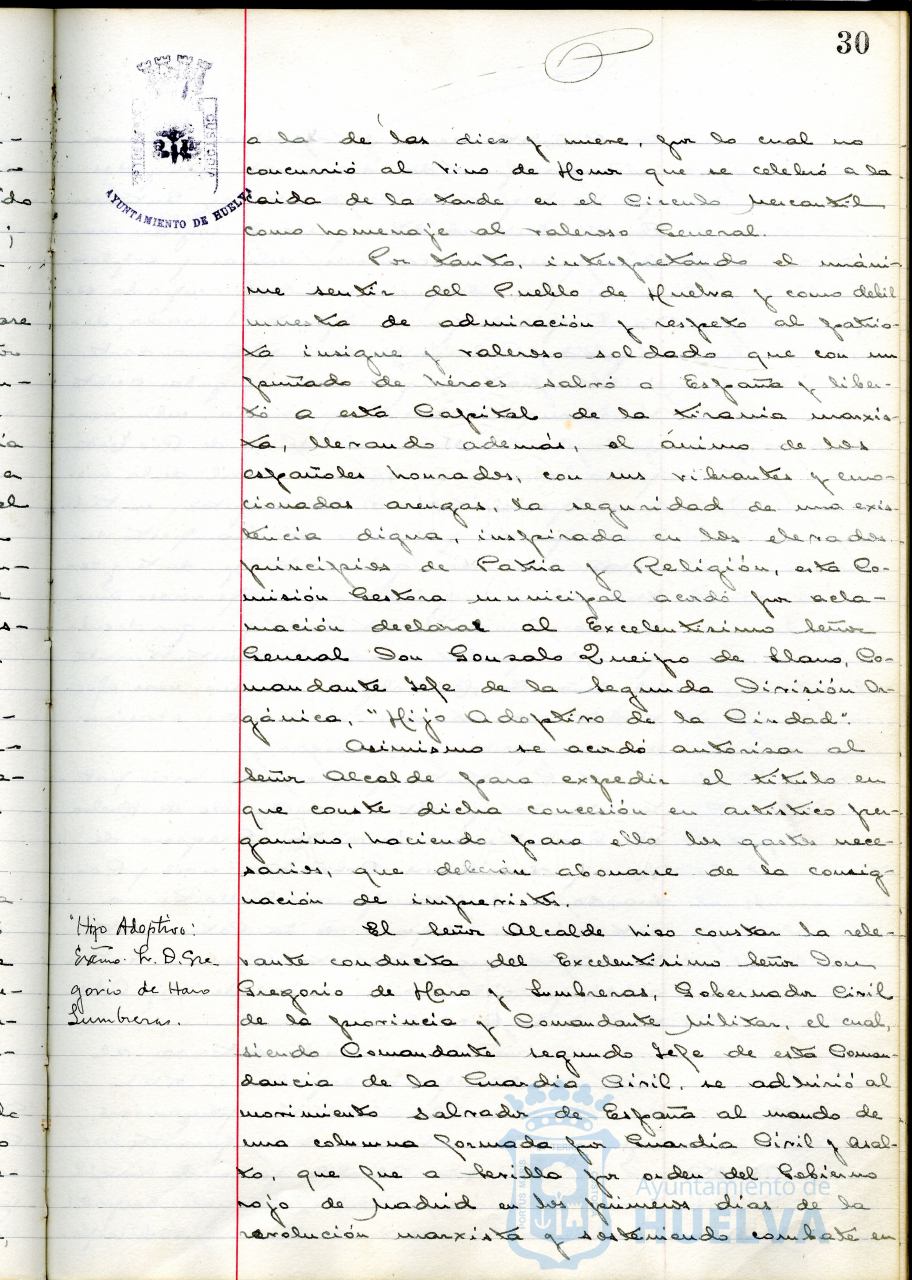 30
AYUNTAMIENTO DE HUELVA
a la de las diez y nueve, por lo cual no
concurrió al Vino de Honor que se celebró a la
caida de la tarde en el Circulo Mercantil
como homenaje al valeroso General.
Por tanto, interpretando el unáni-
me sentir del Pueblo de Huelva y como débil
muestra de admiración y respeto al patrio-
ta insigne y valeroso soldado que con un
puñado de héroes salvó a España y liber-
tó a esta Capital de la tirania marxis-
ta, llevando además, el ánimo de los
españoles honrados, con sus vibrantes y emo-
cionadas arengas, la seguridad de una exis-
tencia digna, inspirada en los elevados
principios de Patria y Religión, esta Co-
misión Gestora municipal acordó por acla-
mación declarar al Excelentisimo Señor
General Don Gonzalo Queipo de Llano, Co-
mandante Jefe de la Segunda División Or-
gánica, "Hijo Adoptivo de la Ciudad".
Asimismo se acordó autorizar al
Señor Alcalde para expedir el titulo en
que conste dicha concesión en artistico per-
gamino, haciendo para ello los gastos nece-
sarios, que deberán abonarse de la consig-
nación de imprevistos.
"Hijo Adoptivo:
Exćmo. Sr. D. Gre-
gorio de Haro
Lumbreras.
El Señor Alcalde hizo constar la rele-
vante conducta del Excelentisimo Señor Don
Gregorio de Haro y Lumbreras, Gobernador Civil
de la provincia y Comandante Militar, el cual,
siendo Comandante segundo Jefe de esta Coman-
dancia de la Guardia Civil, se adhirió al
movimiento salvador de España al mando de
una columna formada por Guardia Civil y Asal-
to, que fue a Sevilla por orden del Gobierno
rojo de Madrid en los primeros dias de la
revolución marxista y sosteniendo combate en
Ayuntamiento de
HUELVA